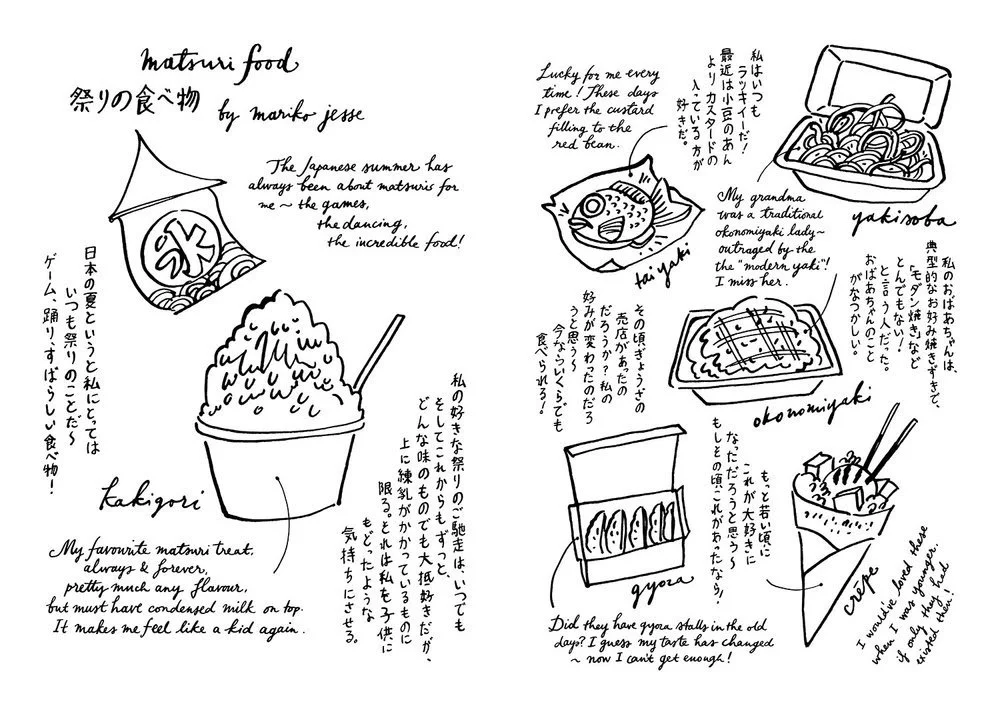 matsuri food
祭りの食べ物
by mariko jesse
The Japanese summer has
always been about matsuris for
me ~ the games,
the dancing,
the incredible food!
氷
日本の夏というと私にとっては
いつも祭りのことだ〜
ゲーム、踊り、すばらしい食べ物！
kakigori
My favourite matsuri treat,
always & forever,
pretty much any flavour,
but must have condensed milk on top.
It makes me feel like a kid again.
私の好きな祭りのご馳走は、いつでも
そしてこれからもずっと、
どんな味のものでも大抵好きだが、
上に練乳がかかっているものに
限る。それは私を子供に
もどったような
気持ちにさせる。
Lucky for me every
time! These days
I prefer the custard
filling to the
red bean.
私はいつも
ラッキイーだ！
最近は小豆のあん
より カスタードの
入っている方が
好きだ。
taiyaki
yakisoba
My grandma
was a traditional
okonomiyaki lady~
outraged by the
the "modern yaki"!
I miss her.
私のおばあちゃんは、
典型的なお好み焼きずきで、
「モダン焼き」など
とんでもない！
と言う人だった。
おばあちゃんのこと
がなつかしい。
okonomiyaki
その頃、ぎょうざの
売店があったの
だろうか？私の
好みが変わったのだろ
うと思う〜
今ならいくらでも
食べられる！
gyoza
Did they have gyoza stalls in the old
days? I guess my taste has changed
~ now I can't get enough!
もっと若い頃に
これが大好きに
なっただろうと思う〜
もしその頃これがあったなら！
crepe
I would've loved these
when I was younger.
if only they had
existed then!